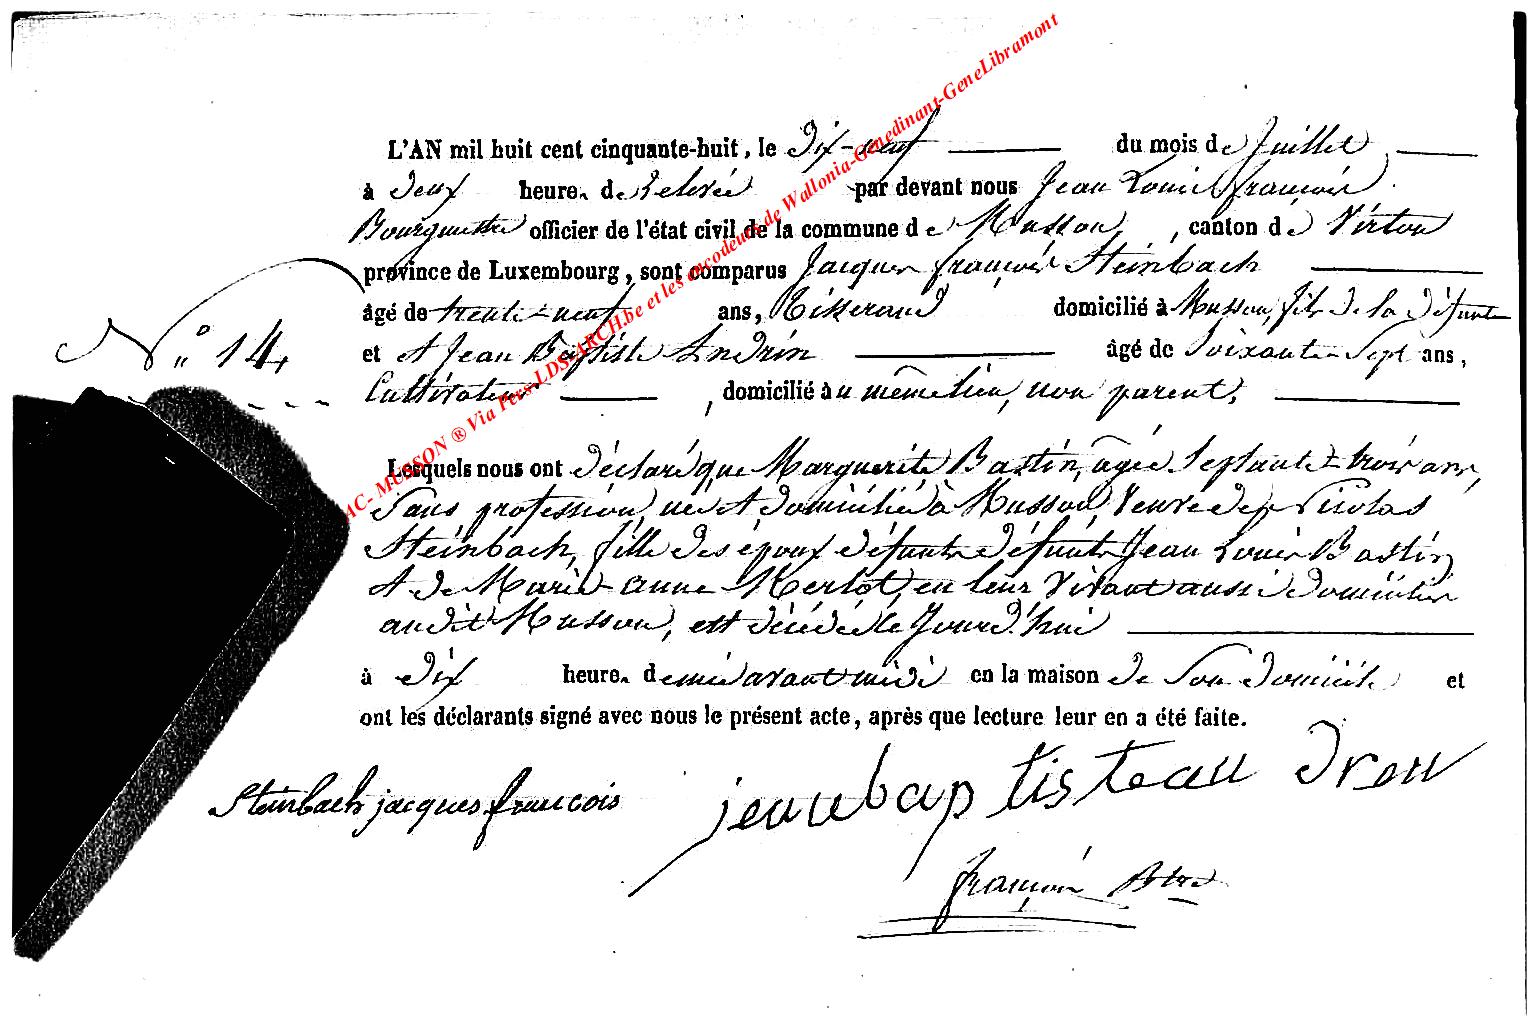 L'AN mil huit cent cinquante-huit, le Dix-neuf du mois de Juillet
à Deux heure. de Relevée par devant nous Jean Louis françois
Bourguestre officier de l'état civil de la commune de Musson, canton de Virton
province de Luxembourg, sont comparus Jacques françois Steinbach
âgé de trente-neuf ans, Tisserand domicilié à Musson, fils de la Défunte
N° 14
et et Jean Baptiste Andrin âgé de Soixante Sept ans,
Cultivateur, domicilié au même lieu, non parent,
Lesquels nous ont déclaré que Marguerite Bastin, agée Septante-trois ans,
Sans profession, née et domiciliée à Musson, Veuve de Nicolas
Steinbach, fille des époux défunts défunts Jean Louis Bastin
et de Marie-anne Merlot, en leur Vivant aussi domiciliés
audit Musson, est décédée le Jourd'hui
à dix heure. demie avant midi en la maison de Son domicile et
ont les déclarants signé avec nous le présent acte, après que lecture leur en a été faite.
Steinbach jacques francois
jeanbaptisteau dren
françois
AC- MUSSON ® Via Pers-LDS-ARCH.be et les encodeurs de Wallonia-Genedinant-GeneLibramont